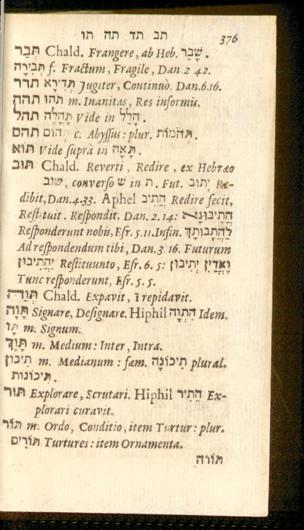 תב תד תה תו 376
תְּבַר Chald. Frangere, ab Heb. שָׁבַר.
תְּבִירָה f. Fractum, Fragile, Dan 2 42.
תדר תְּדִירָא Jugiter, Continuò, Dan. 6.16.
תהה תֹּהוּ m. Inanitas, Res informis.
תהל תָּהֳלָה Vide in הָלַל.
תהם תְּהוֹם c. Abyssus: plur. תְּהֹמוֹת.
תוא Vide suprà in תָּאָה.
תּוּב Chald. Reverti, Redire, ex Hebræo
שׁוּב, converso ש in ת. Fut. יְתוּב Re-
dibit, Dan. 4.33. Aphel הֲתִיב Redire fecit,
Restituit. Respondit, Dan. 2.14:
Responderunt nobis, Esr. 5.11. Infin. לַהֲתָבוּתָךְ
Ad respondendum tibi, Dan. 3 16. Futurum
יַהֲתִיבוּן Restituunto, Esr. 6. 5: וֶאֱדַיִן יְתִיבוּן
Tunc responderunt, Esr. 5. 5.
תְּוַהּ Chald. Expavit, Trepidavit.
תָּוָה Signare, Designare. Hiphil הִתְוָה Idem.
תָּו m. Signum.
תָּוֶךְ m. Medium: Inter, Intra.
תִּיכוֹן m. Medianum: fœm. תִּיכוֹנָה plural.
תִּיכוֹנוֹת.
תּוּר Explorare, Scrutari. Hiphil הֵתִיר Ex-
plorari curavit.
תּוֹר m. Ordo, Conditio, item Turtur: plur.
תּוֹרִים Turtures: item Ornamenta.
תּוֹרה